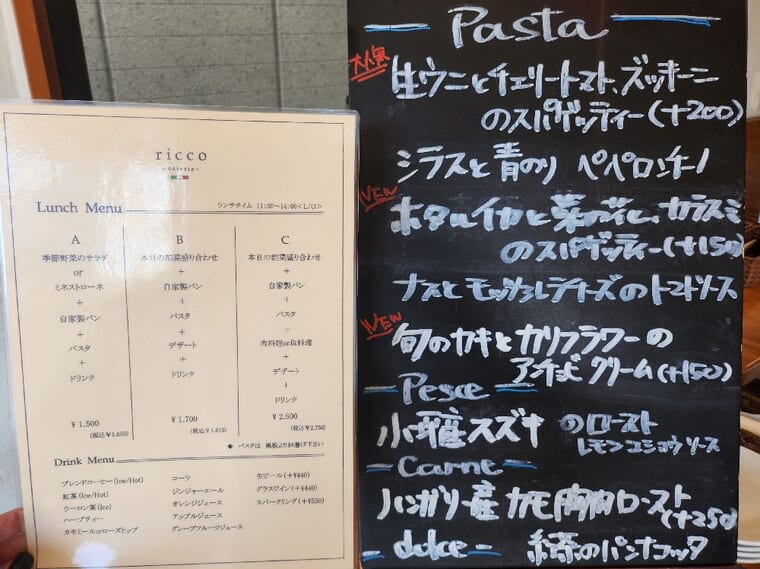 ricco
osteria
Lunch Menu
ランチタイム 11:30~14:00<L/O>
A
季節野菜のサラダ
or
ミネストローネ
+
自家製パン
+
パスタ
+
ドリンク
¥1,500
(税込¥1,650)
B
本日の前菜盛り合わせ
+
自家製パン
+
パスタ
+
デザート
+
ドリンク
¥1,700
C
本日の前菜盛り合わせ
+
自家製パン
+
パスタ
+
肉料理or魚料理
+
デザート
+
ドリンク
¥2,500
(税込¥2,750)
◆ パスタは 黒板よりお選び下さい
Drink Menu
ブレンドコーヒー(Ice/Hot)
紅茶(Ice/Hot)
ウーロン茶(Ice)
ハーブティー
カモミールorローズヒップ
コーラ
ジンジャーエール
オレンジジュース
アップルジュース
グレープフルーツジュース
生ビール(+¥440)
グラスワイン(+¥440)
スパークリング(+¥550)
Pasta
大人気
生ウニとチェリートマト、ズッキーニ
のスパゲッティー(+200)
シラスと青のり ペペロンチーノ
NEW
ホタルイカと菜の花、カラスミ
のスパゲッティー(+150)
ナスとモッツァレラチーズのトマトソース
NEW
旬のカキとカリフラワーの
アンチョビクリーム(+150)
Pesce
小樽産スズキ のロースト
レモンコショウソース
Carne
ハンガリー産カモ胸肉ロースト
(+250)
dolce
パンナコッタ